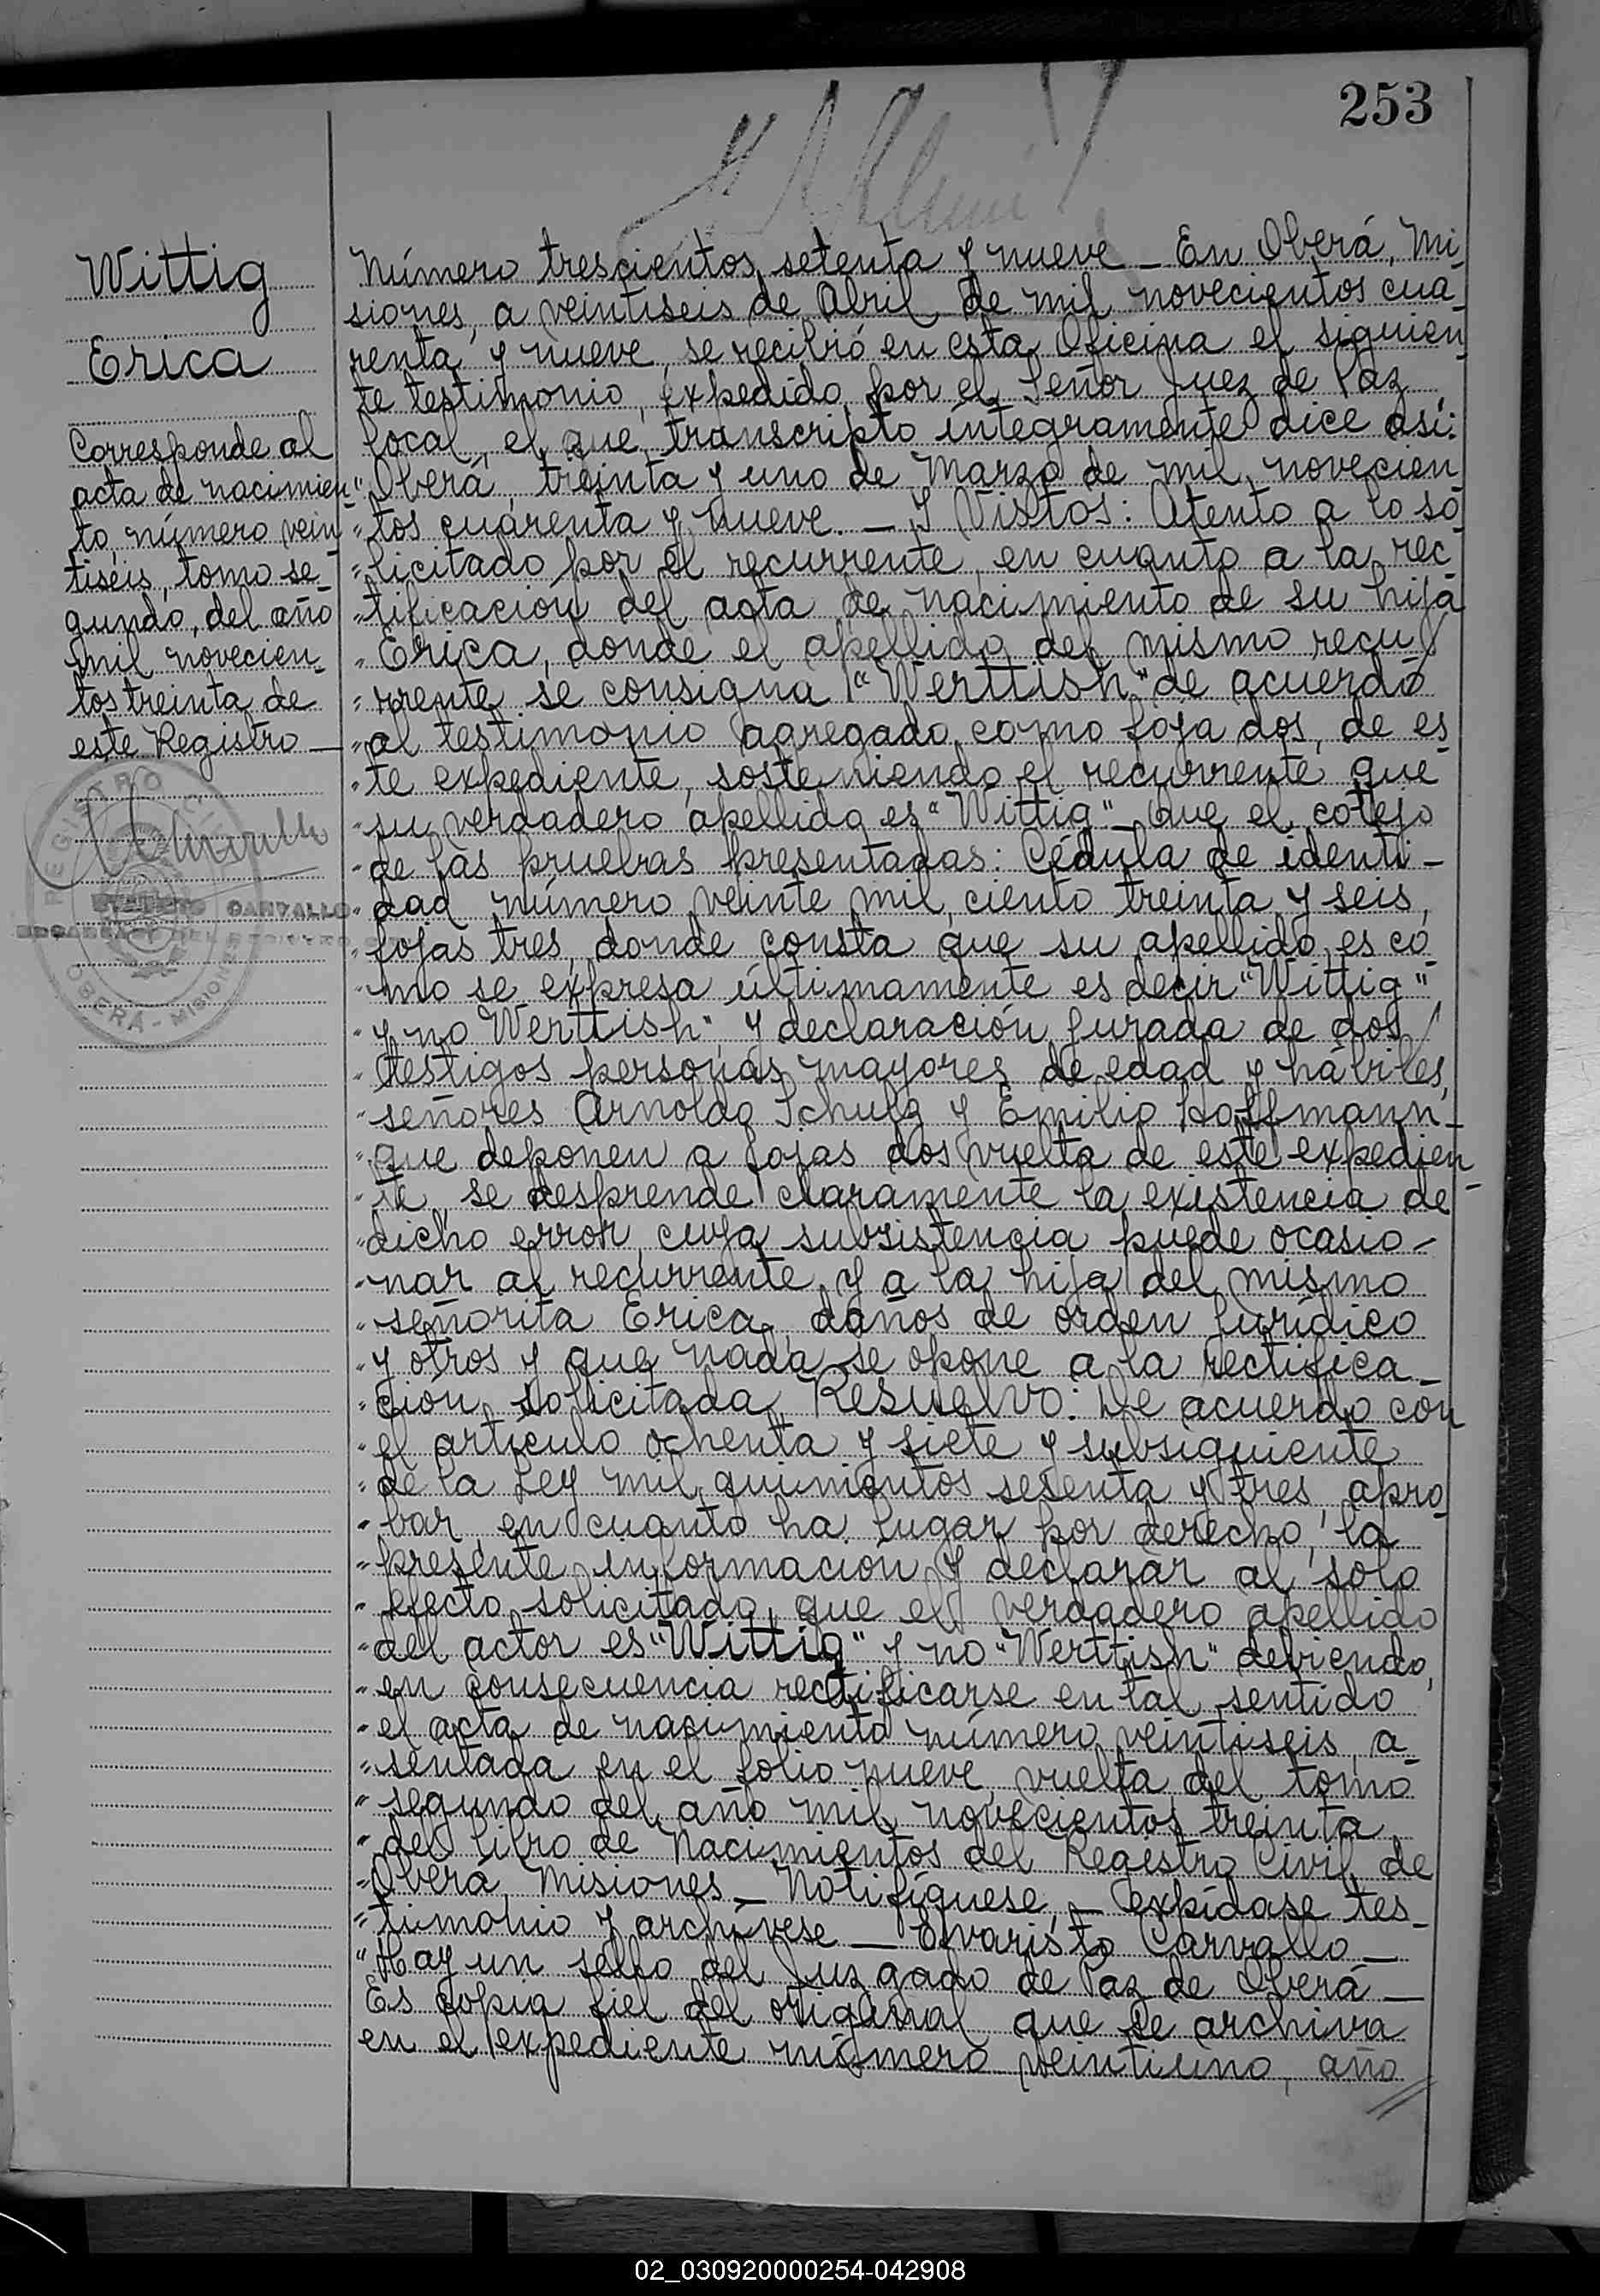 253
Wittig
Erica
Corresponde al
acta de nacimien
to, número vein
tiséis, tomo se-
gundo, del año
mil novecien-
tos treinta de
este Registro —
REGISTRO
CARVALLO
OBERÁ - MISIONES
Número trescientos setenta y nueve — En Oberá, Mi-
siones, a veintiseis de Abril de mil novecientos cua-
renta y nueve, se recibió en esta Oficina el siguien-
te testimonio, expedido por el Señor Juez de Paz
local, el que transcripto íntegramente dice así:
"Oberá, treinta y uno de Marzo de mil novecien-
"tos cuarenta y nueve. — Y Vistos: Atento a lo so-
"licitado por el recurrente, en cuanto a la rec-
"tificación del acta de nacimiento de su hija
"Erica, donde el apellido del mismo recu-
"rrente se consigna "Werttish" de acuerdo
"al testimonio agregado como foja dos, de es-
"te expediente, sosteniendo el recurrente que
"su verdadero apellido es "Wittig" — Que el cotejo
"de las pruebas presentadas: Cédula de identi-
"dad número veinte mil, ciento treinta y seis,
"fojas tres, donde consta que su apellido es co-
"mo se expresa últimamente es decir "Wittig"
"y no Werttish", y declaración jurada de dos
"testigos personas mayores de edad y hábiles,
"señores Arnoldo Schulz y Emilio Hoffmann,
"que deponen a fojas dos vuelta de este expedien-
"te, se desprende claramente la existencia de
"dicho error, cuya subsistencia puede ocasio-
"nar al recurrente y a la hija del mismo
"señorita Erica, daños de orden jurídico
"y otros y que nada se opone a la rectifica-
"ción solicitada, Resuelvo: De acuerdo con
"el artículo ochenta y siete y subsiguiente
"de la Ley mil quinientos sesenta y tres, apro-
"bar, en cuanto ha lugar por derecho, la
"presente información y declarar al solo
"efecto solicitado, que el verdadero apellido
"del actor es "Wittig" y no "Werttish" debiendo,
"en consecuencia rectificarse en tal sentido
"el acta de nacimiento número veintiseis, a-
"sentada en el folio nueve vuelta, del tomo
"segundo del año mil novecientos treinta
"del libro de Nacimientos del Registro Civil de
"Oberá, Misiones — Notifíquese, — expídase tes-
"timonio y archívese — Evaristo Carvallo —
"Hay un sello del Juzgado de Paz de Oberá —
Es copia fiel del original que se archiva
en el expediente número veintiuno, año
02_030920000254-042908